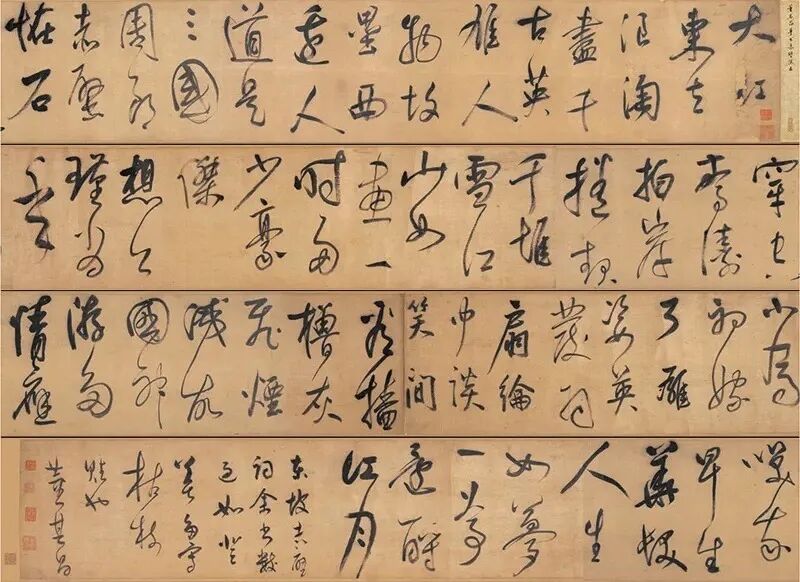 大江
東去
浪淘
盡千
古英
雄人
物故
壘西
邊人
道是
三國
周郎
赤壁
怪石
穿空
濤
拍岸
捲起
千堆
雪江
山如
畫一
時多
少豪
傑
想公
瑾當
年
小喬
初嫁
了雄
姿英
發羽
扇綸
巾談
笑間
看檣
櫓灰
飛煙
滅故
國神
游多
情應
笑我
早生
華髮
人生
如夢
一尊
還酹
江月
東坡赤壁
詞余書數
過如
枯枝
也
董其昌